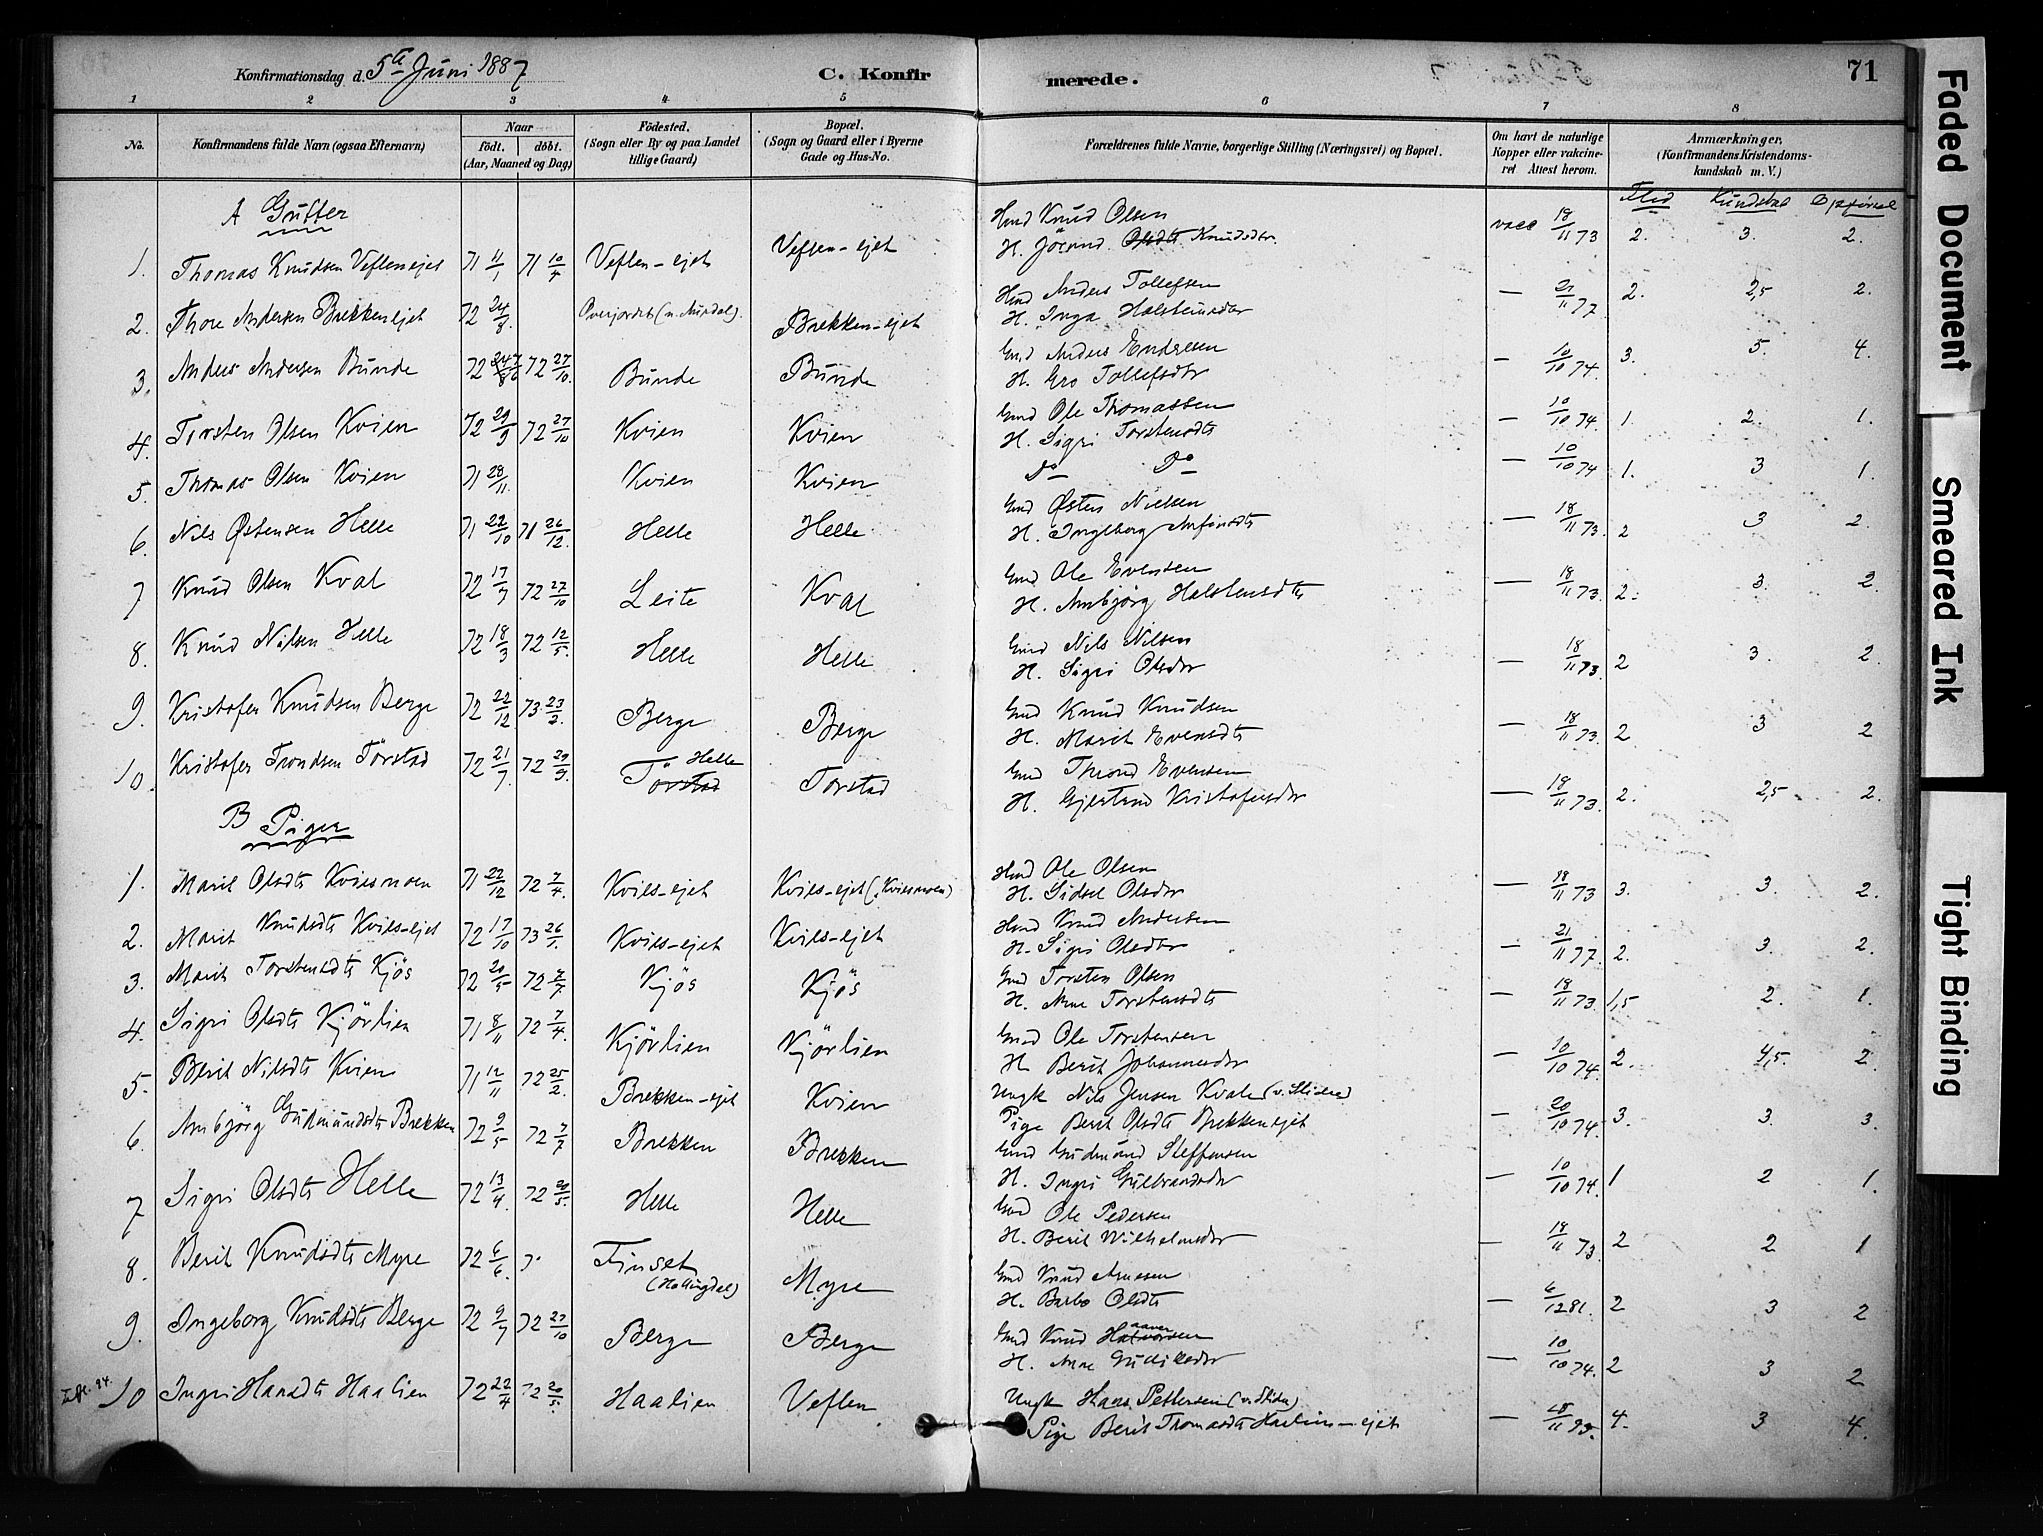 Konfirmationsdag d. 5te Juni 1887
C. Konfirmerede.
71
1 2 3 4 5 6 7 8
No.
Konfirmandens fulde Navn (ogsaa Efternavn)
Naar
födt. döbt.
(Aar, Maaned og Dag)
Födested.
(Sogn eller By og paa Landet
tillige Gaard)
Bopæl.
(Sogn og Gaard eller i Byerne
Gade og Hus-No.
Forældrenes fulde Navne, borgerlige Stilling (Næringsvei) og Bopæl.
Om havt de naturlige
Kopper eller vakcine-
ret Attest herom.
Anmærkninger,
(Konfirmandens Kristendoms-
kundskab m. V.)
Flid Kundskab Opförsel
A Gutter
1. Thomas Knudsen Veflenejet 71 11/1 71 10/4 Veflen-ejet Veflen-ejet Hmd Knud Olsen
H. Jörand Olsdtr Knudsdtr. vacc 18/11 73 2. 3. 2.
2. Thore Andersen Brekkenejet 72 24/8. Brekken-ejet Hmd Anders Tollefsen
H. Inga Halstensdtr — 21/11 77 2. 2,5 2.
3. Anders Andersen Bunde 72 72 27/10. Bunde Bunde Gmd Anders Endresen
H. Gro Tollefsdtr — 10/10 74. 3. 5. 4.
4. Torsten Olsen Kvien 72 29/9 72 27/10 Kvien Kvien Gmd Ole Thomassen
H. Sigri Torstensdtr — 10/10 74. 1. 2. 1.
5. Thomas Olsen Kvien 71 28/11. Kvien Kvien Do Do — 10/10 74 1. 3 1.
6. Nils Østensen Helle 71 22/10 71 26/12. Helle Helle Gmd Østen Nielsen
H. Ingeborg Arfinsdtr — 18/11 73. 2 3 2.
7 Knud Olsen Kval 72 17/7 72 27/10 Leite Kval Gmd Ole Evensen
H. Ambjörg Halstensdtr — 18/11 73. 2. 3. 2
8. Knud Nilsen Helle 72 18/3 72 12/5. Helle Helle Gmd Nils Nilsen
H. Sigri Olsdtr — 18/11 73. 2 3. 2.
9. Kristofer Knudsen Berge 72 22/12 73 23/2. Berge Berge Gmd Knud Knudsen
H. Marit Evensdtr — 18/11 73. 2 3 2
10. Kristofer Trondsen Törstad 72 21/7. 72 29/9. Törstad Helle Torstad Gmd Thrond Evensen
H. Gjertrud Kristofersdtr — 18/11 73. 2. 2,5 2.
B Piger
1. Marit Olsdtr Kviesmoen 71 22/12 72 7/4. Kvils-ejet Kvils-ejet (Kviesmoen) Hmd Ole Olsen
H. Sidsel Olsdtr — 18/11 73 3. 3. 2.
2. Marit Knudsdtr Kvils-ejet 72 17/10 73 26/1. Kvils-ejet Kvils-ejet Hmd Knud Andersen
H. Sigri Olsdtr — 21/11 77. 2. 3. 2.
3. Marit Torstensdtr Kjös 72 20/5 72 7/7. Kjös Kjös Gmd Torsten Olsen
H. Anne Torstensdtr — 18/11 73. 1,5 2. 1.
4. Sigri Olsdtr Kjörlien 71 8/11 72 7/4. Kjörlien Kjörlien Gmd Ole Torstensen
H Berit Johannesdtr — 10/10 74. 2. 4,5. 2
5. Berit Nilsdtr Kvien 71 12/11 72 25/2. Brekken-ejet Kvien Ungk Nils Jensen Kvale (v. Slidre)
Pige Berit Olsdtr Brekkenejet — 20/10 74. 3. 3. 3.
6. Ambjörg Gudmundsdtr Brekken 72 9/5 72 7/7 Brekken Brekken Gmd Gudmund Steffensen
H. Ingri Gulbrandsdtr — 10/10 74. 1 2 1.
7 Sigri Olsdtr Helle 72 13/4. 72 20/5. Helle Helle Gmd Ole Pedersen
H. Berit Wilhelmsdtr — 18/11 73. 2 2 1
8. Berit Knudsdtr Myre 72 6/6. Finset
(Hallingdal) Myre Gmd Knud Arnesen
H. Barbo Olsdtr — 6/12 81. 2 3 2
9. Ingeborg Knudsdtr Berge 72 9/7 72 27/10 Berge Berge Gmd Knud Halvorsen
H. Anne — 10/10 74. 2 3 2
10 Ingri Hansdtr Haalien 72 22/4 72 20/5. Haalien Veflen Ungk Hans Pettersen (v. Slidre)
Pige Berit Thomasdtr Haaliens-ejet — 4. 3 4.
Faded Document
Smeared Ink
Tight Binding